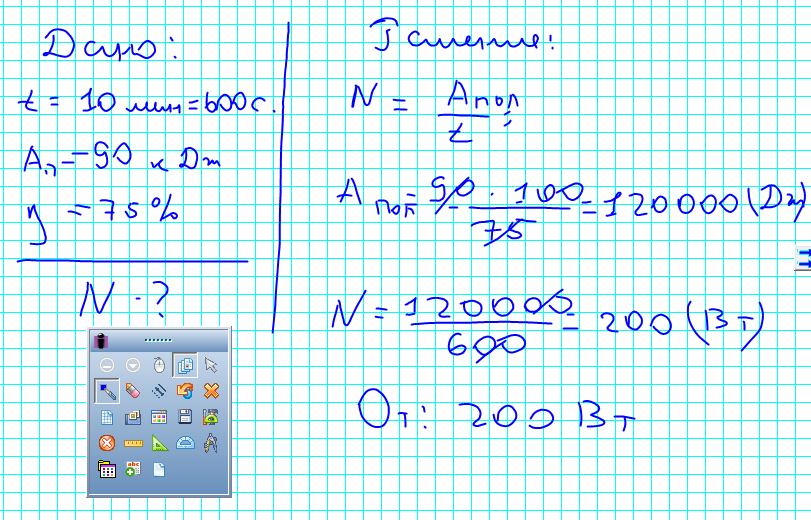 Дано:
t = 10 мин = 600 с.
Aп = 90 кДж
η = 75%
N - ?
Решение:
N = Aпол / t ;
Aпол = 90 · 100 / 75 = 120000 (Дж)
N = 120000 / 600 = 200 (Вт)
От: 200 Вт
abc